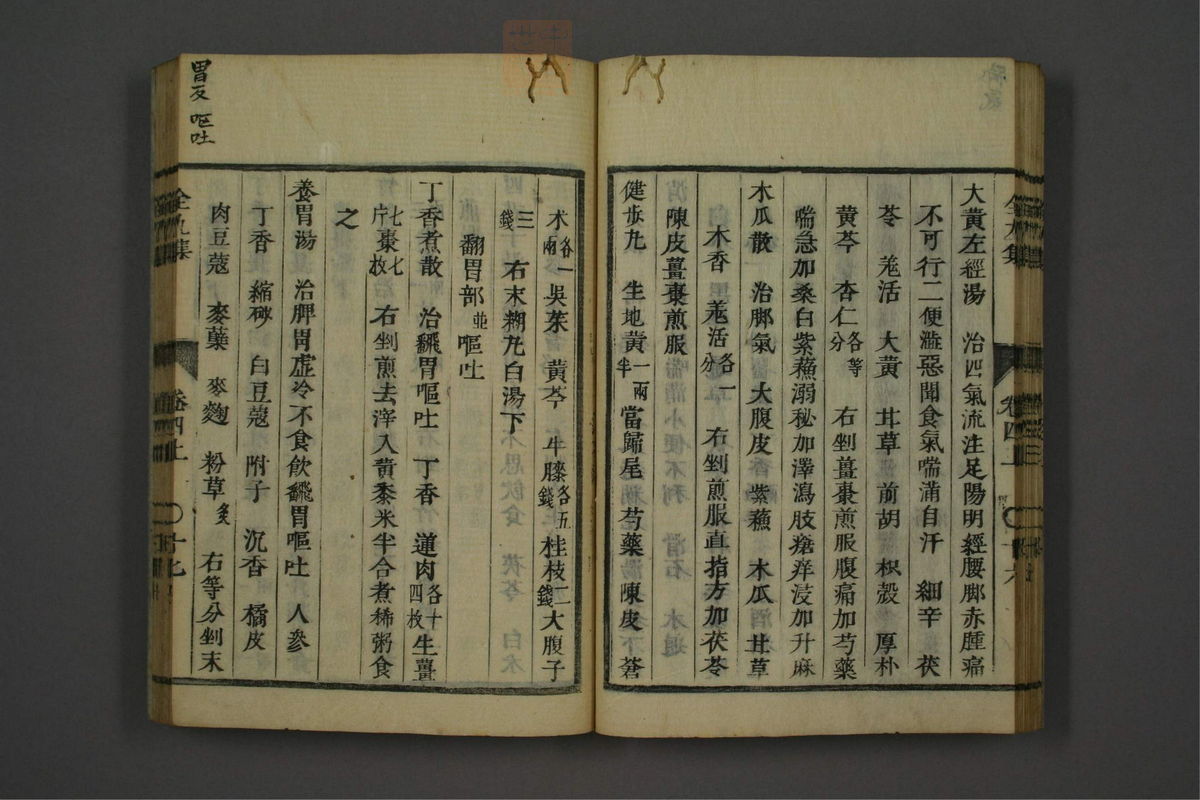 大黃左經湯　治四氣流注足陽明經腰脚赤腫痛
不可行二便澁惡聞食氣喘滿自汗　細辛　茯
苓　羗活　大黃　甘草　前胡　枳殼　厚朴
黃芩　杏仁各等分　右剉薑棗煎服腹痛加芍藥
喘急加桑白紫蘓溺秘加澤瀉肢瘡痒浸加升麻
木瓜散　治脚氣　大腹皮　紫蘓　木瓜　甘草
木香　羗活各一分　右剉煎服直指方加茯苓
陳皮薑棗煎服
健步丸　生地黃一兩半　當歸尾　芍藥　陳皮　蒼
卷四上　十六
朮各一兩　吳茱　黃芩　牛膝各五錢　桂枝二錢　大腹子
三錢　右末糊丸白湯下
翻胃部並嘔吐
丁香煮散　治飜胃嘔吐　丁香　蓮肉各十四枚　生薑
七片棗七枚　右剉煎去滓入黃黍米半合煮稀粥食
之
養胃湯　治脾胃虛冷不食飲飜胃嘔吐　人參
丁香　縮砂　白豆蔻　附子　沉香　橘皮
肉豆蔻　麥蘖　麥麴　粉草炙　右等分剉末
全九集　卷四上　十七
胃反　嘔吐